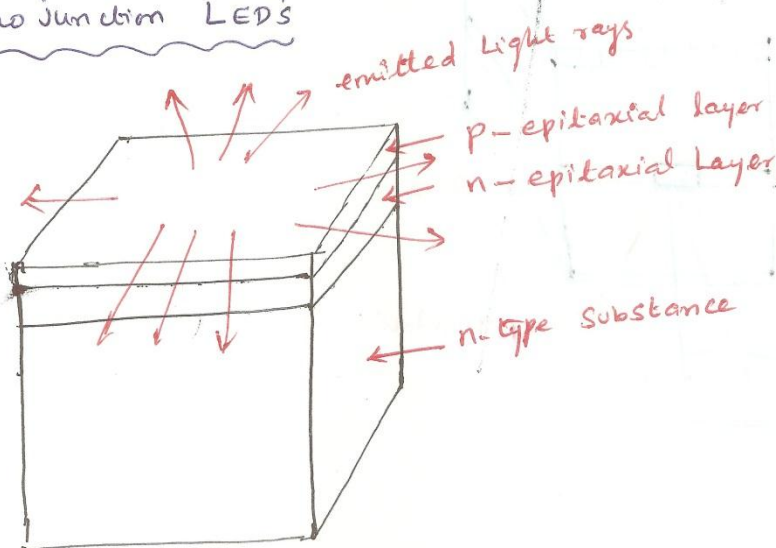 Junction LEDs
emitted Light rays
p-epitaxial layer
n-epitaxial Layer
n-type Substance